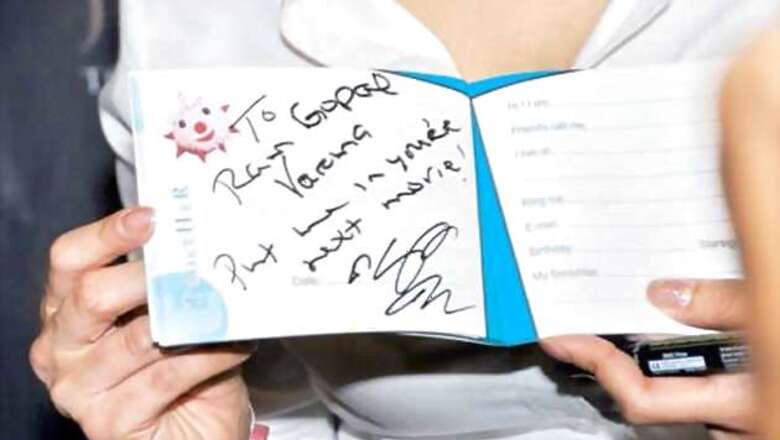 To
Ram Gopal
Varma
Put me in your
next movie!
Date
Hi ! I am
Friends call me
I live at
Ring me
E-mail
Birthday
Starsign
My favourites